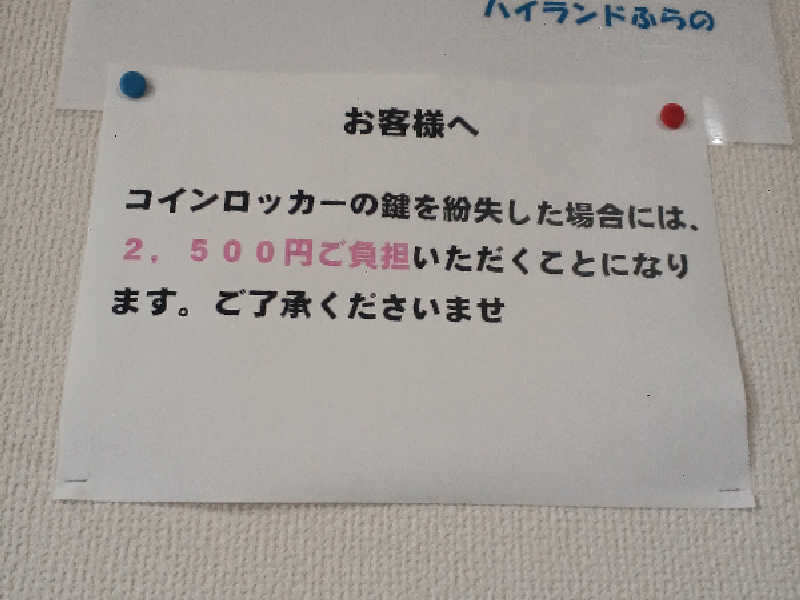 ハイランドふらの
お客様へ
コインロッカーの鍵を紛失した場合には、
２．５００円ご負担いただくことになり
ます。ご了承くださいませ